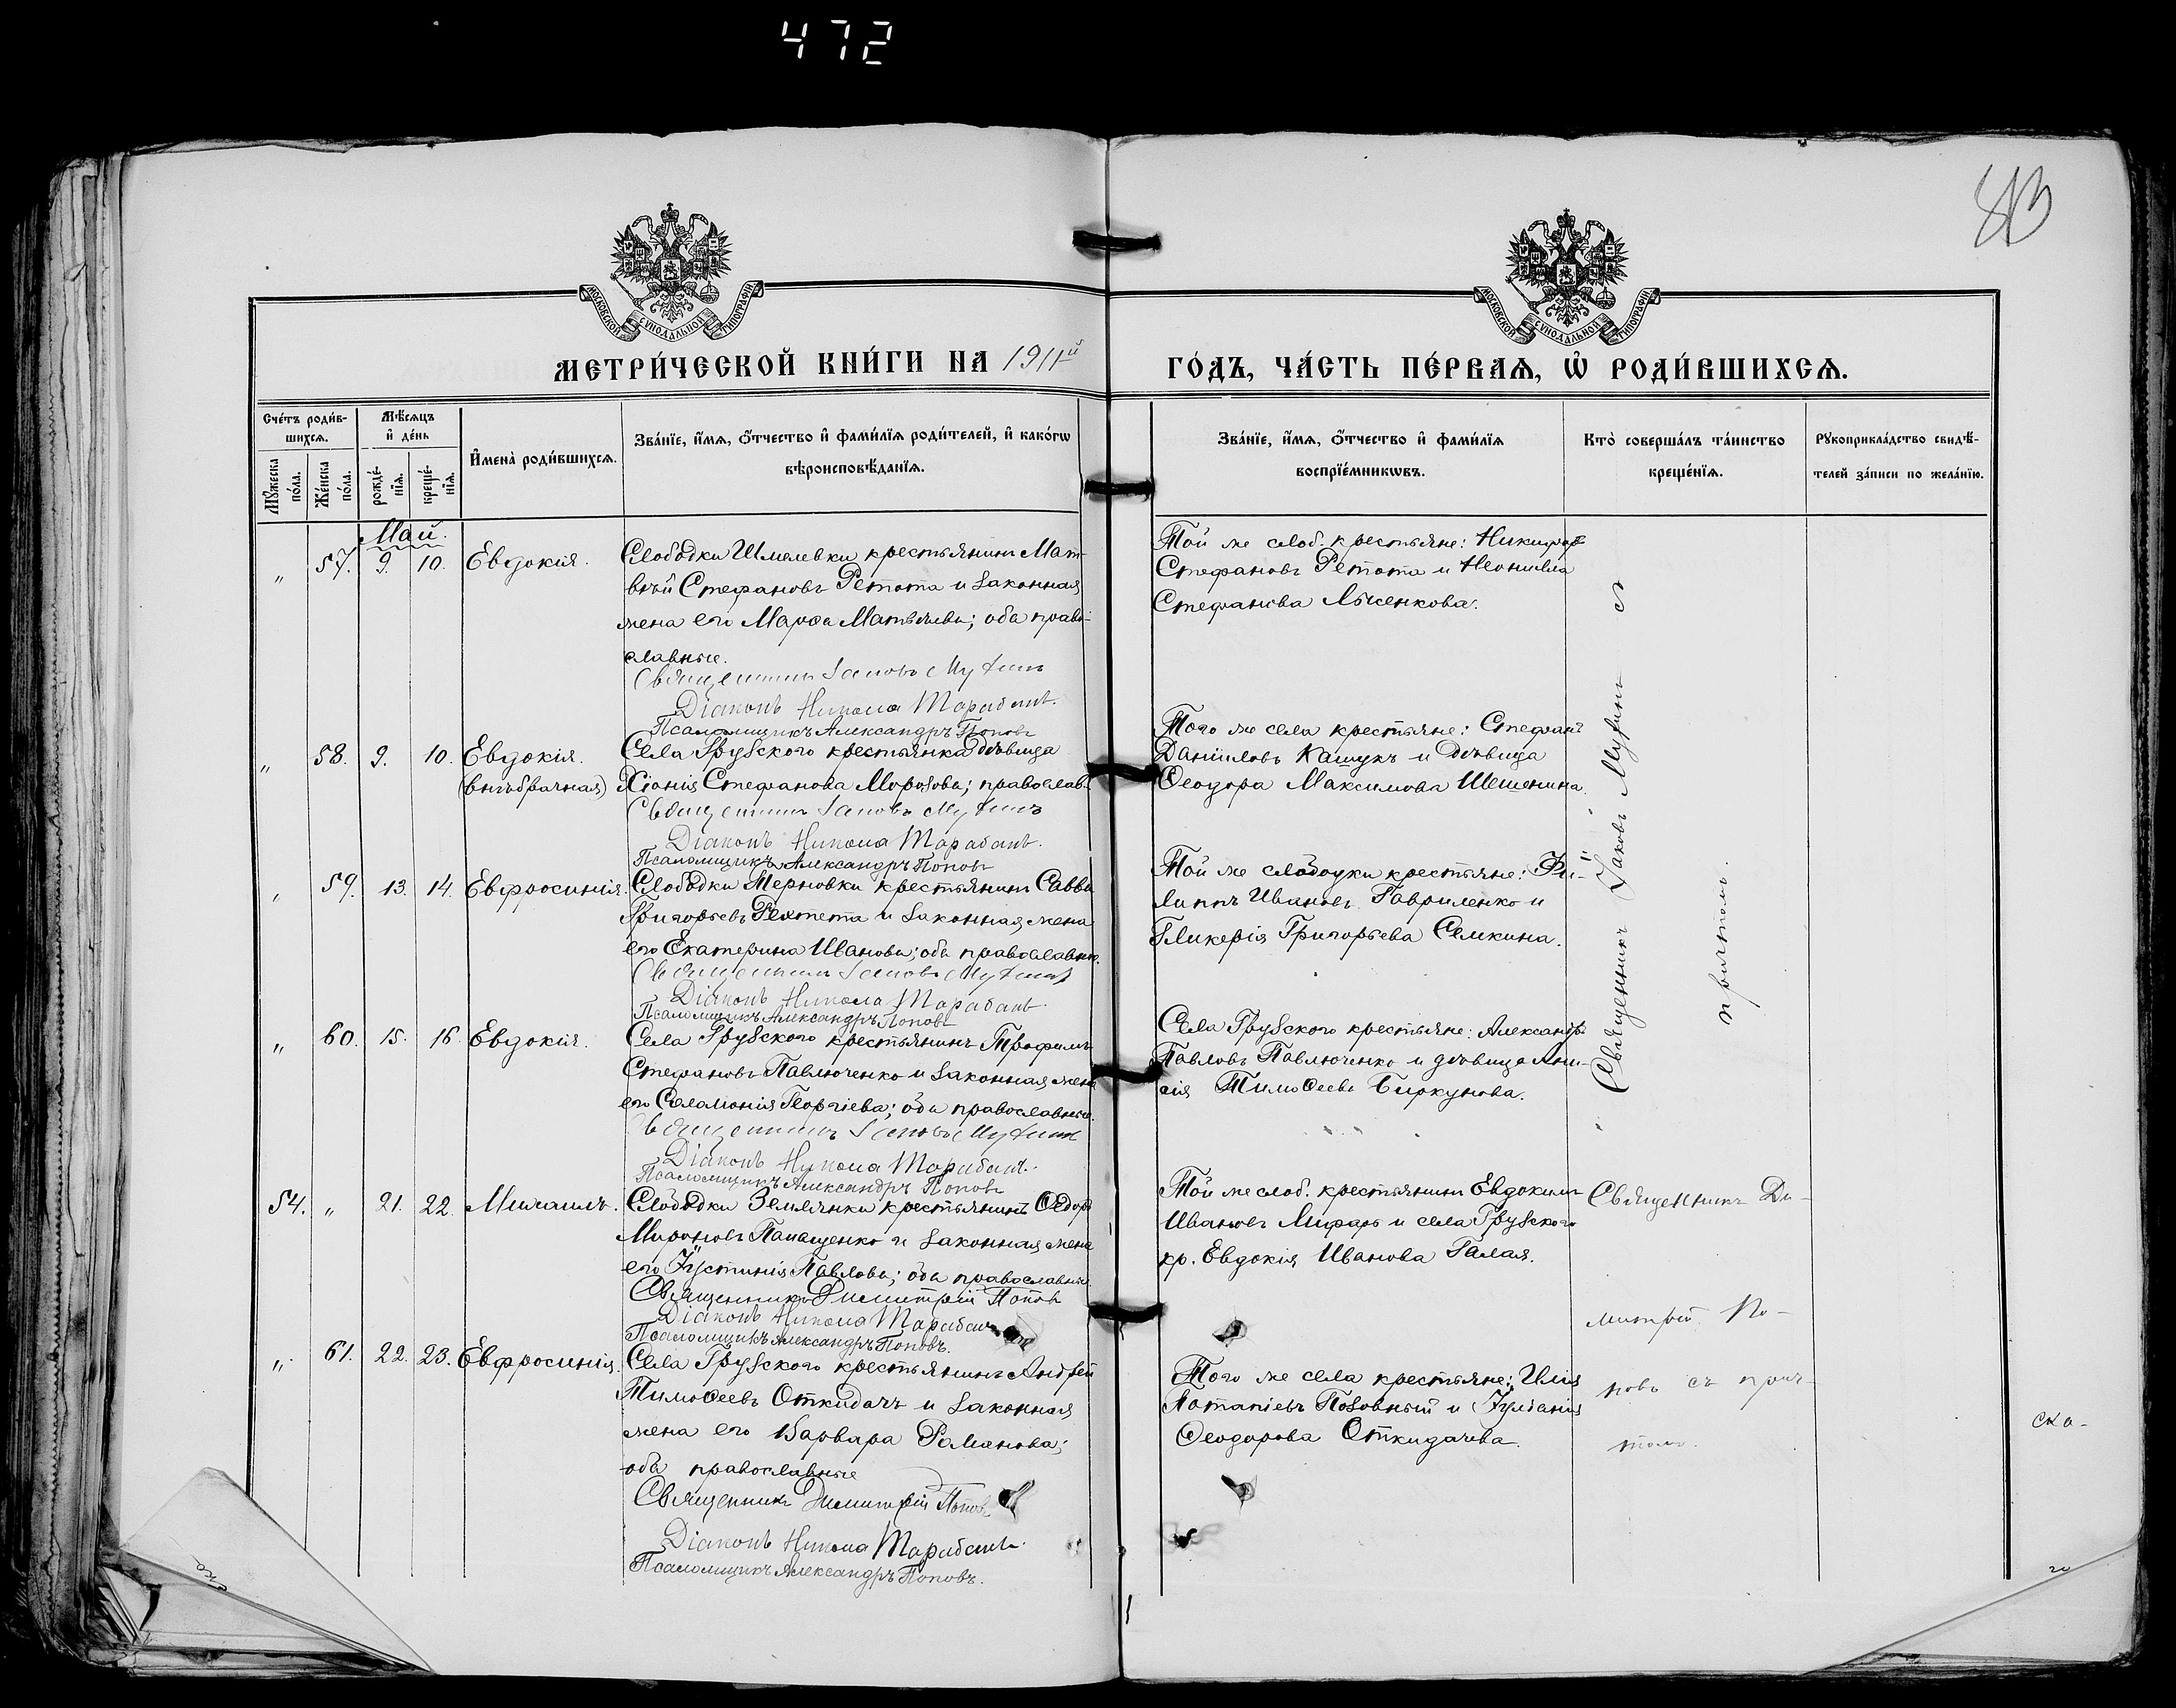 472
83
МОСКОВСКОЙ СУНОДАЛЬНОЙ ТИПОГРАФІИ
МОСКОВСКОЙ СУНОДАЛЬНОЙ ТИПОГРАФІИ
МЕТРИ́ЧЕСКОЙ КНИ́ГИ НА 1911й
ГО́ДЪ, ЧА́СТЬ ПЕ́РВАѦ, Ѡ҆ РОДИ́ВШИХСѦ.
Сче́тъ роди́в-
шихсѧ.
Мꙋ́жеска по́ла.
Же́нска по́ла.
Мѣ́сѧцъ
и҆ де́нь
рожде́-
нїѧ.
креще́-
нїѧ.
И҆мена̀ роди́вшихсѧ.
Зва́нїе, и҆́мѧ, ѻ҆́тчество и҆ фами́лїѧ роди́телей, и҆ како́гѡ
вѣроисповѣ́данїѧ.
Зва́нїе, и҆́мѧ, ѻ҆́тчество и҆ фами́лїѧ
воспрїе́мникѡвъ.
Кто̀ соверша́лъ та́инство
креще́нїѧ.
Рꙋкоприкла́дство свидѣ́-
телей за́писи по жела́нїю.
Май.
" 57. 9. 10. Евдокія.
Слободки Шмелевки крестьянинъ Мат-
вѣй Стефановъ Ретота и законная
жена его Марѳа Матвѣева; оба право-
славные.
Священникъ Іаковъ Мухинъ
Діаконъ Никола Тарабанъ.
Псаломщикъ Александръ Поповъ
Той же слоб. крестьяне: Никифоръ
Стефановъ Ретота и Неонилла
Стефанова Лысенкова.
" 58. 9. 10. Евдокія.
(внѣбрачная)
Села Грузского крестьянка дѣвица
Хіонія Стефанова Морозова; православ.
Священникъ Іаковъ Мухинъ
Діаконъ Никола Тарабанъ.
Псаломщикъ Александръ Поповъ
Того же села крестьяне: Стефанъ
Даніиловъ Кашукъ и дѣвица
Ѳеодора Максимова Шешенина.
" 59. 13. 14. Евфросинія.
Слободки Мерновки крестьянинъ Савва
Григорьевъ и законная жена
его Екатерина Иванова; оба православные.
Священникъ Іаковъ Мухинъ
Діаконъ Никола Тарабанъ.
Псаломщикъ Александръ Поповъ
Той же слободки крестьяне: Фи-
липпъ Ивановъ Гавриленко и
Гликерія Григорьева Семкина.
" 60. 15. 16. Евдокія.
Села Грузского крестьянинъ Трофимъ
Стефановъ Павлюченко и законная жена
его Соломонія Георгіева; оба православные.
Священникъ Іаковъ Мухинъ
Діаконъ Никола Тарабанъ.
Псаломщикъ Александръ Поповъ
Села Грузского крестьяне: Александръ
Павловъ Павлюченко и дѣвица Ани-
сія Тимоѳеева Биркунова.
Священникъ Іаковъ Мухинъ съ
причтомъ.
54. " 21. 22. Михаилъ.
Слободки Землянки крестьянинъ Ѳедоръ
Мироновъ Панащенко и законная жена
его Іустинія Павлова; оба православные.
Священникъ Димитрій Поповъ
Діаконъ Никола Тарабанъ
Псаломщикъ Александръ Поповъ.
Той же слоб. крестьянинъ Евдокимъ
Ивановъ Лифарь и села Грузского
кр. Евдокія Иванова Галая.
Священникъ Ди-
митрій По-
повъ съ прич-
томъ.
" 61. 22. 23. Евфросинія.
Села Грузского крестьянинъ Андрей
Тимоѳеевъ Откидачъ и законная
жена его Варвара Романова;
оба православные
Священникъ Димитрій Поповъ
Діаконъ Никола Тарабанъ.
Псаломщикъ Александръ Поповъ.
Того же села крестьяне: Илія
Потапіевъ Позовный и Іуліанія
Ѳеодорова Откидачева.
ска-
го